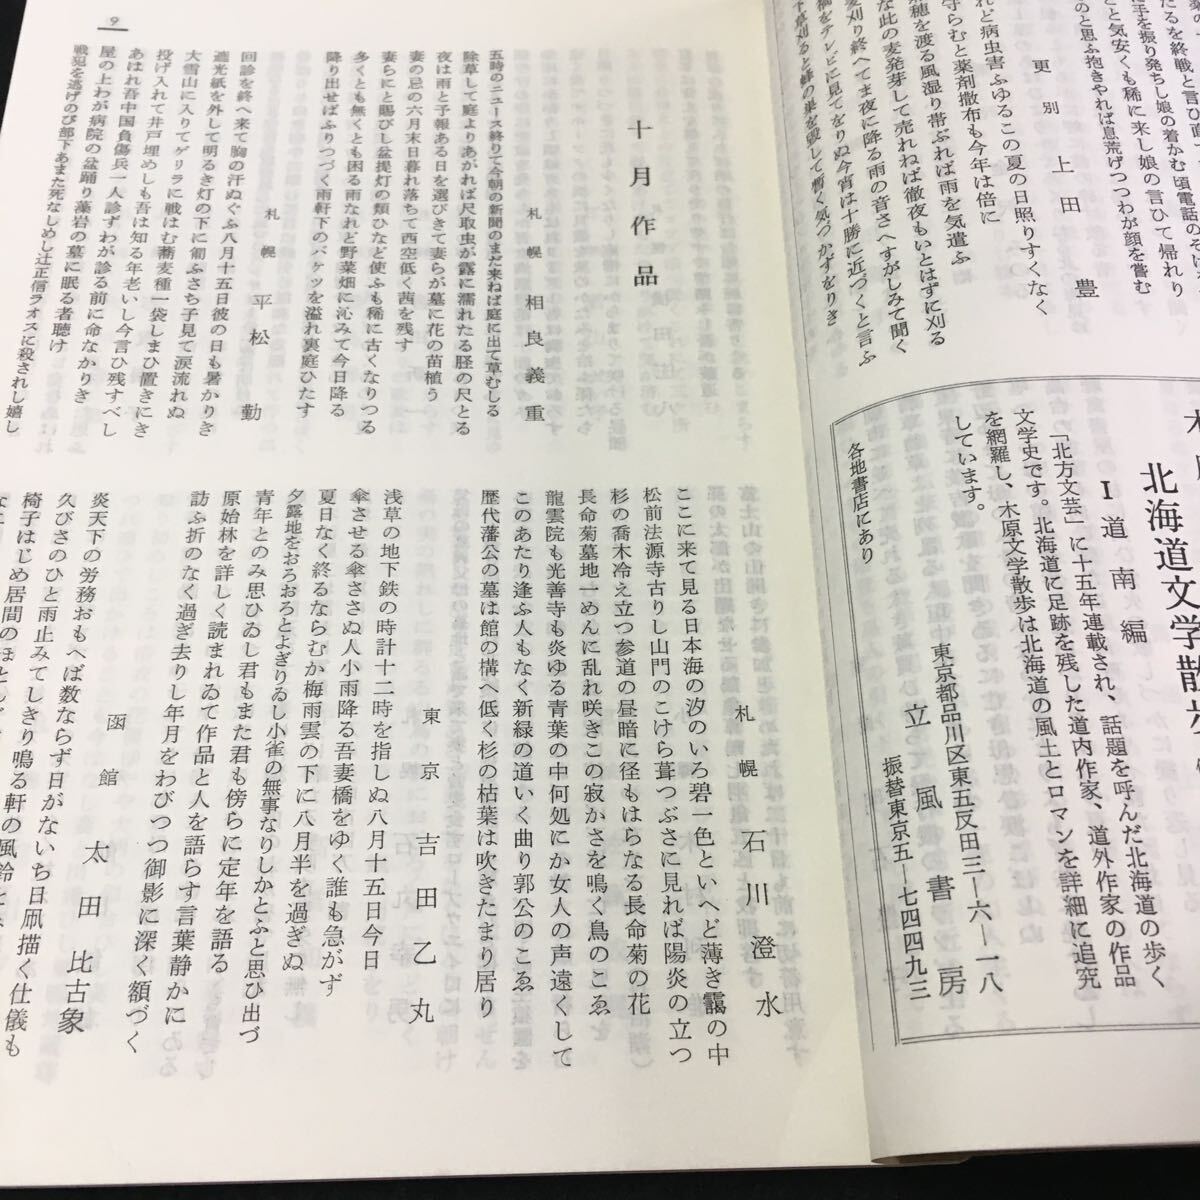 たるを終戦と言ひ直
に手を振り発ち娘の着かむ頃電話のそば
とと気安くも稀に来し娘の言ひて帰れり
のと思ふ抱きやれば息荒げつつわが顔を嘗む
更別 上田豊
れど病虫害ふゆるこの夏の日照りすくなく
守らむと薬剤散布も今年は倍に
穂を渡る風湿り帯ぶれば雨を気遣ふ
な此の麦発芽して売れねば徹夜もいとはずに刈る
麦刈り終へてま夜に降る雨の音さへすがしみて聞く
禍をテレビに見てをりぬ今宵は十勝に近づくと言ふ
干草刈ると蜂の巣を毀して暫く気づかずをりき
北海道文学散歩
Ⅰ 道南編
「北方文芸」に十五年連載され、話題を呼んだ北海道の歩く
文学史です。北海道に足跡を残した道内作家、道外作家の作品
を網羅し、木原文学散歩は北海道の風土とロマンを詳細に追究
しています。
東京都品川区東五反田三―六―一八
立風書房
振替東京五―七四四九三
各地書店にあり
9
十月作品
札幌 相良義重
五時のニュース終りて今朝の新聞のまだ来ねば庭に出て草むしる
除草して庭よりあがれば尺取虫が露に濡れたる脛の尺とる
夜は雨と予報ある日を選びきて妻らが墓に花の苗植う
妻の忌の六月末日暮れ落ちて西空低く茜を残す
妻らにと賜びし盆提灯の類ひなど使ふも稀に古くなりつる
多くとも無くとも困る雨なれど野菜畑に沁みて今日降る
降り出せばふりつづく雨軒下のバケツを溢れ裏庭ひたす
札幌 平松勤
回診を終へ来て胸の汗ぬぐふ八月十五日彼の日も暑かりき
遮光紙を外して明るき灯の下に匍ふさち子見て涙流れぬ
大雪山に入りてゲリラに戦はむ蕎麦種一袋しまひ置きにき
投げ入れて井戸埋めしも吾は知る年老いし今言ひ残すべし
あはれ吾中国負傷兵一人診ずわが診る前に命なかりき
屋の上わが病院の盆踊り藻岩の墓に眠る者聴け
戦犯を逃げのび部下あまた死なしめし辻正信ラオスに殺されし嬉し
札幌 石川澄水
ここに来て見る日本海の汐のいろ碧一色といへど薄き靄の中
松前法源寺古りし山門のこけら葺つぶさに見れば陽炎の立つ
杉の喬木冷え立つ参道の昼暗に径もはらなる長命菊の花
長命菊墓地一めんに乱れ咲きこの寂かさを鳴く鳥のこゑ
龍雲院も光善寺も炎ゆる青葉の中何処にか女人の声遠くして
このあたり逢ふ人もなく新緑の道いく曲り郭公のこゑ
歴代藩公の墓は館の構へ低く杉の枯葉は吹きたまり居り
東京 吉田乙丸
浅草の地下鉄の時計十二時を指しぬ八月十五日今日
傘させる傘ささぬ人小雨降る吾妻橋をゆく誰も急がず
夏日なく終るならむか梅雨雲の下に八月半を過ぎぬ
夕露地をおろおろとよぎりゐし小雀の無事なりしかとふと思ひ出づ
青年とのみ思ひゐし君もまた君も傍らに定年を語る
原始林を詳しく読まれゐて作品と人を語らす言葉静かに
訪ふ折のなく過ぎ去りし年月をわびつつ御影に深く額づく
函館 太田比古象
炎天下の労務おもへば数ならず日がないち日凧描く仕儀も
久びさのひと雨止みてしきり鳴る軒の風鈴
椅子はじめ居間のほとんど